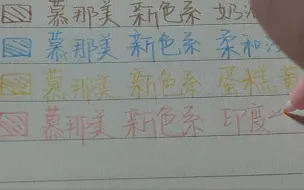 慕那美 新色系 奶
慕那美 新色系 柔和
慕那美 新色系 蛋糕黄
慕那美 新色系 印度